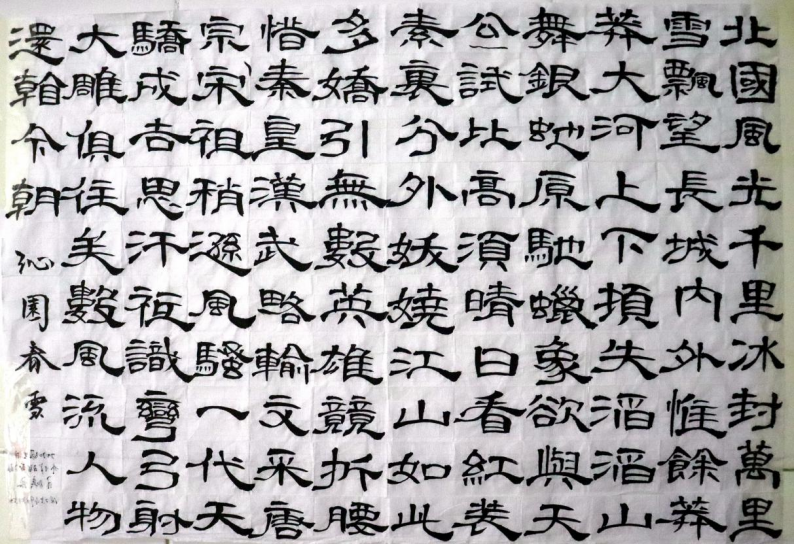 北國風光千里冰封萬里
雪飄望長城內外惟餘莽
莽大河上下頓失滔滔山
舞銀虵原馳蠟象欲與天
公試比高須晴日看紅裝
素裹分外妖嬈江山如此
多嬌引無數英雄競折腰
惜秦皇漢武略輸文采唐
宗宋祖稍遜風騷一代天
驕成吉思汗衹識彎弓射
大雕俱往矣數風流人物
還看今朝 沁園春雪